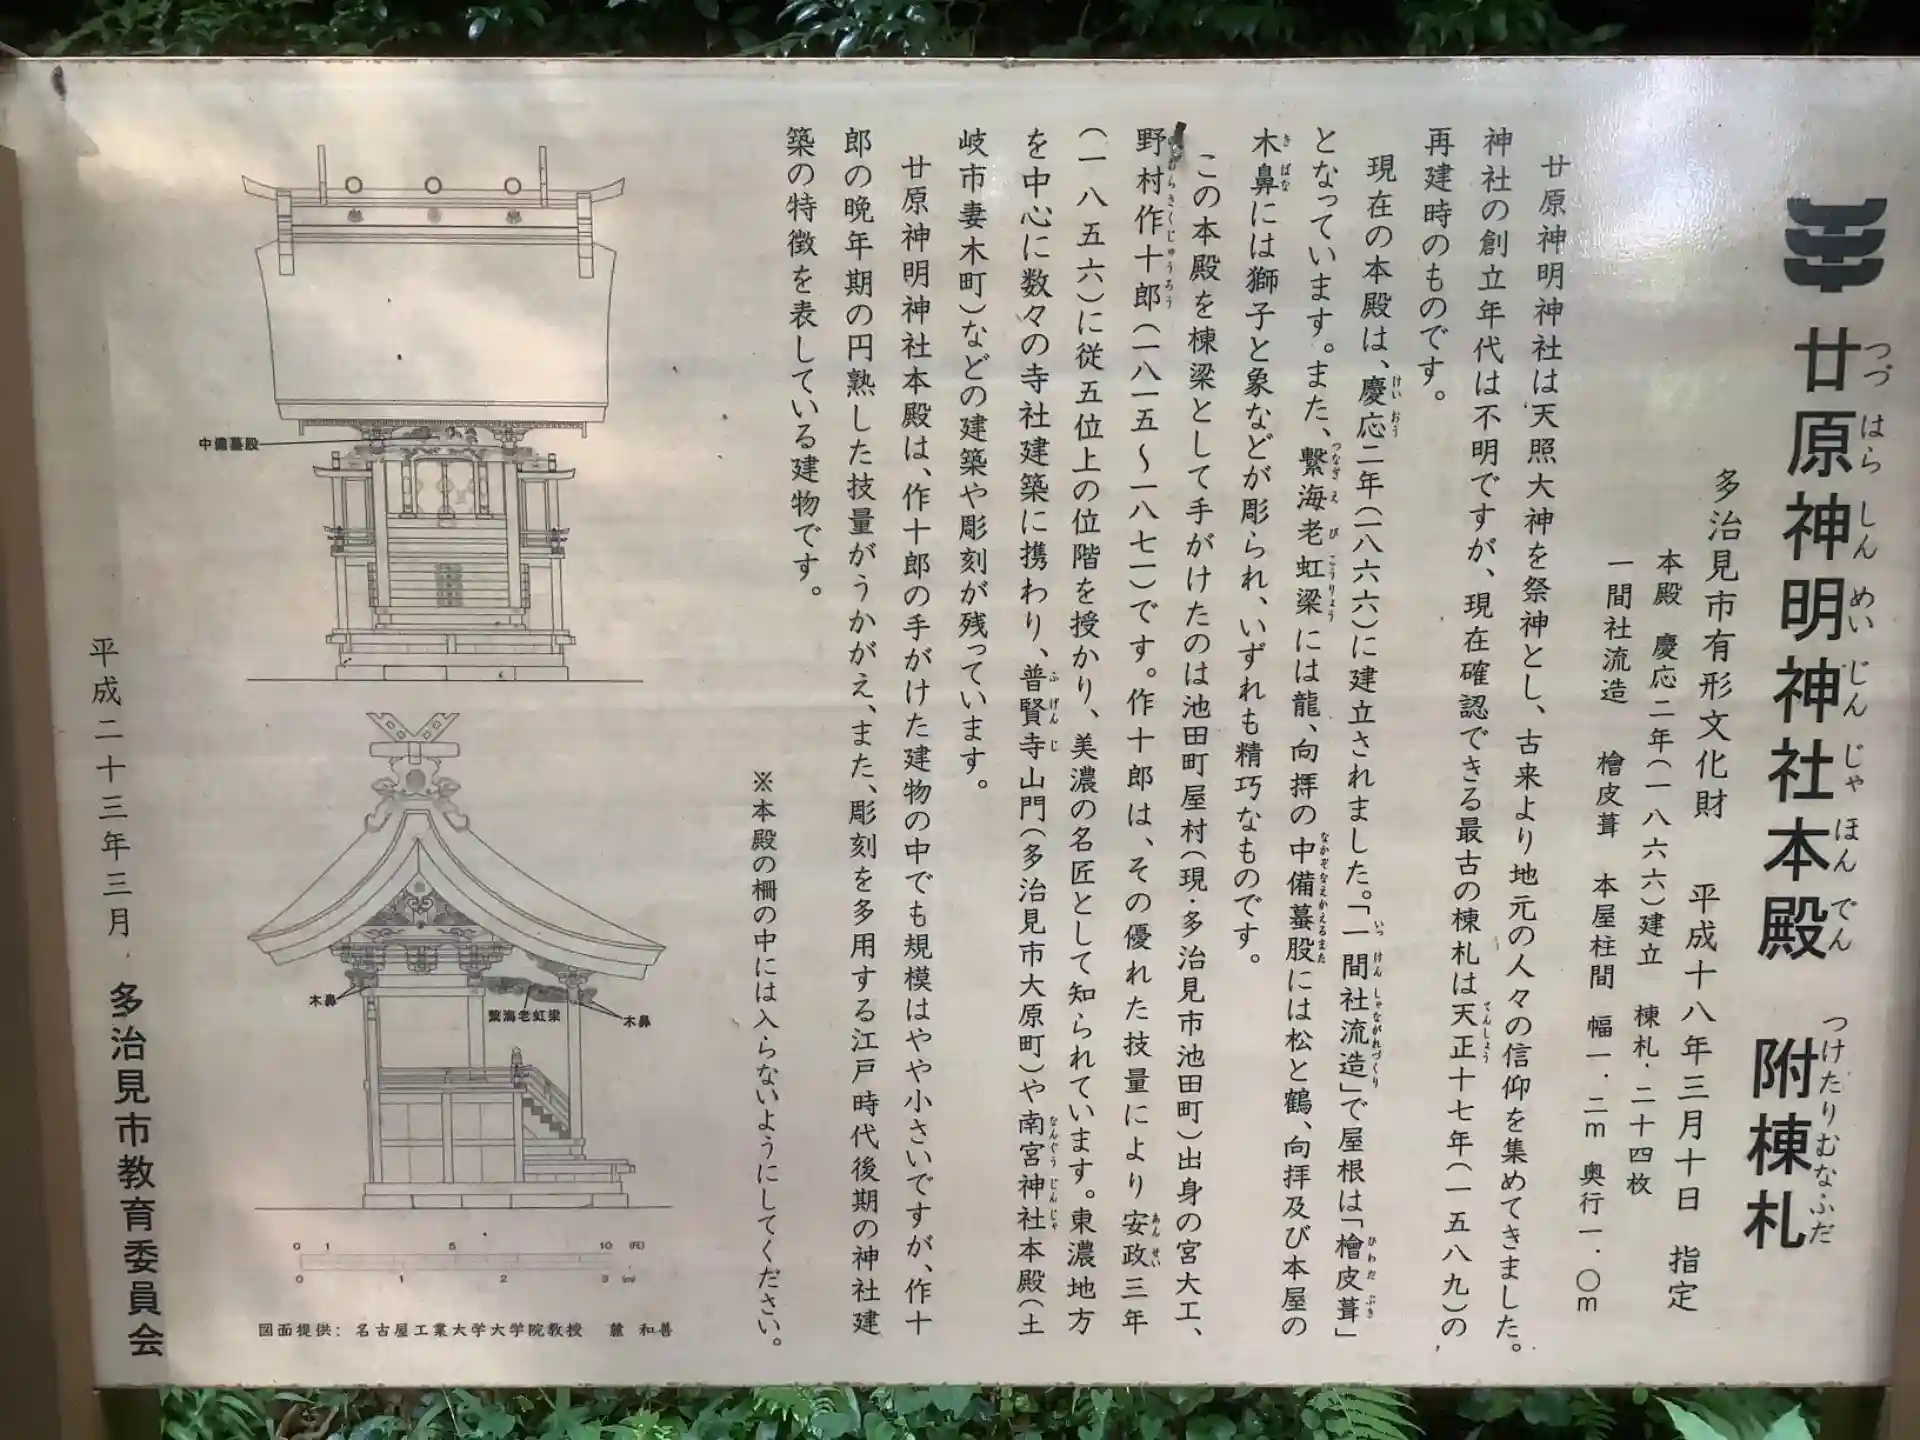 廿原神明神社本殿 附棟札
つづはらしんめいじんじゃほんでん つけたりむなふだ
多治見市有形文化財 平成十八年三月十日 指定
本殿 慶応二年(一八六六)建立 棟札・二十四枚
一間社流造 檜皮葺 本屋柱間 幅一・二m 奥行一・〇m
廿原神明神社は天照大神を祭神とし、古来より地元の人々の信仰を集めてきました。
神社の創立年代は不明ですが、現在確認できる最古の棟札は天正十七年(一五八九)の
再建時のものです。
現在の本殿は、慶応二年(一八六六)に建立されました。「一間社流造」で屋根は「檜皮葺」
となっています。また、繋海老虹梁には龍、向拝の中備蟇股には松と鶴、向拝及び本屋の
木鼻には獅子と象などが彫られ、いずれも精巧なものです。
この本殿を棟梁として手がけたのは池田町屋村(現・多治見市池田町)出身の宮大工、
野村作十郎(一八一五〜一八七一)です。作十郎は、その優れた技量により安政三年
(一八五六)に従五位上の位階を授かり、美濃の名匠として知られています。東濃地方
を中心に数々の寺社建築に携わり、普賢寺山門(多治見市大原町)や南宮神社本殿(土
岐市妻木町)などの建築や彫刻が残っています。
廿原神明神社本殿は、作十郎の手がけた建物の中でも規模はやや小さいですが、作十
郎の晩年期の円熟した技量がうかがえ、また、彫刻を多用する江戸時代後期の神社建
築の特徴を表している建物です。
※本殿の柵の中には入らないようにしてください。
中備蟇股
木鼻
繋海老虹梁
木鼻
0 1 5 10 (尺)
0 1 2 3 (m)
図面提供: 名古屋工業大学大学院教授 麓 和善
平成二十三年三月 多治見市教育委員会